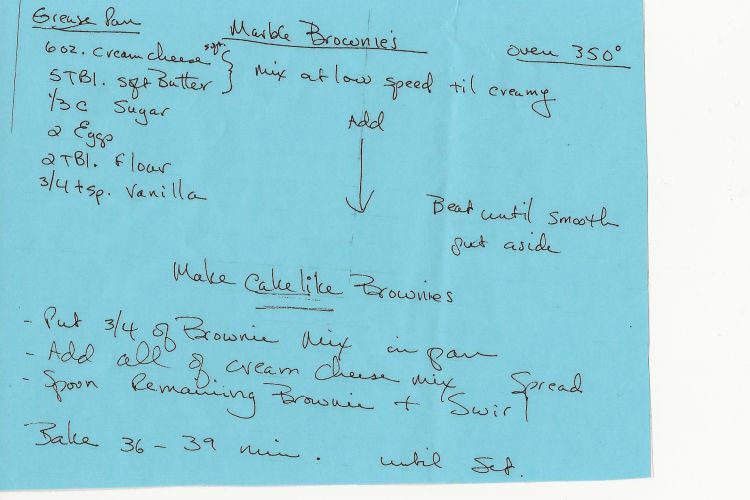 Grease Pan
Marble Brownie's
oven 350°
6 oz. cream cheese sft.
5 TBl. sft Butter } mix at low speed til creamy
1/3 c Sugar
Add
2 Eggs
2 TBl. flour
3/4 tsp. vanilla
Beat until smooth
put aside
Make Cakelike Brownies
- Put 3/4 of Brownie Mix in pan
- Add all of cream cheese mix Spread
- Spoon Remaining Brownie + Swirl
Bake 36 - 39 min. until Set.